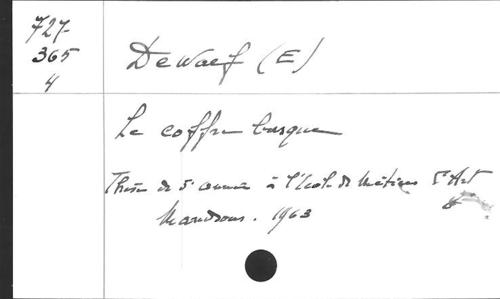 727-
365
4
Dewaef (E)
Le coffre basque
Thèse de 5e année à l'école de Métiers d'Art
1963